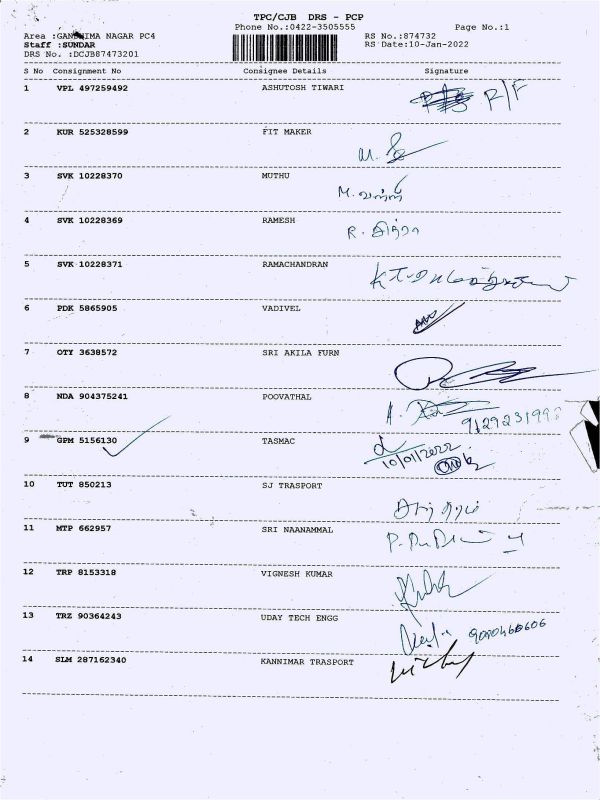 TPC/CJB DRS - PCP
Phone No.:0422-3505555 Page No.:1
Area :GANDHIMA NAGAR PC4 RS No.:874732
Staff :SUNDAR RS Date:10-Jan-2022
DRS No. :DCJB87473201
S No Consignment No Consignee Details Signature
1 VPL 497259492 ASHUTOSH TIWARI R/F
2 KUR 525328599 FIT MAKER
3 SVK 10228370 MUTHU
4 SVK 10228369 RAMESH
5 SVK 10228371 RAMACHANDRAN
6 PDK 5865905 VADIVEL
7 OTY 3638572 SRI AKILA FURN
8 NDA 904375241 POOVATHAL
9 GPM 5156130 TASMAC
10/01/2022
10 TUT 850213 SJ TRASPORT
11 MTP 662957 SRI NAANAMMAL
12 TRP 8153318 VIGNESH KUMAR
13 TRZ 90364243 UDAY TECH ENGG
14 SLM 287162340 KANNIMAR TRASPORT